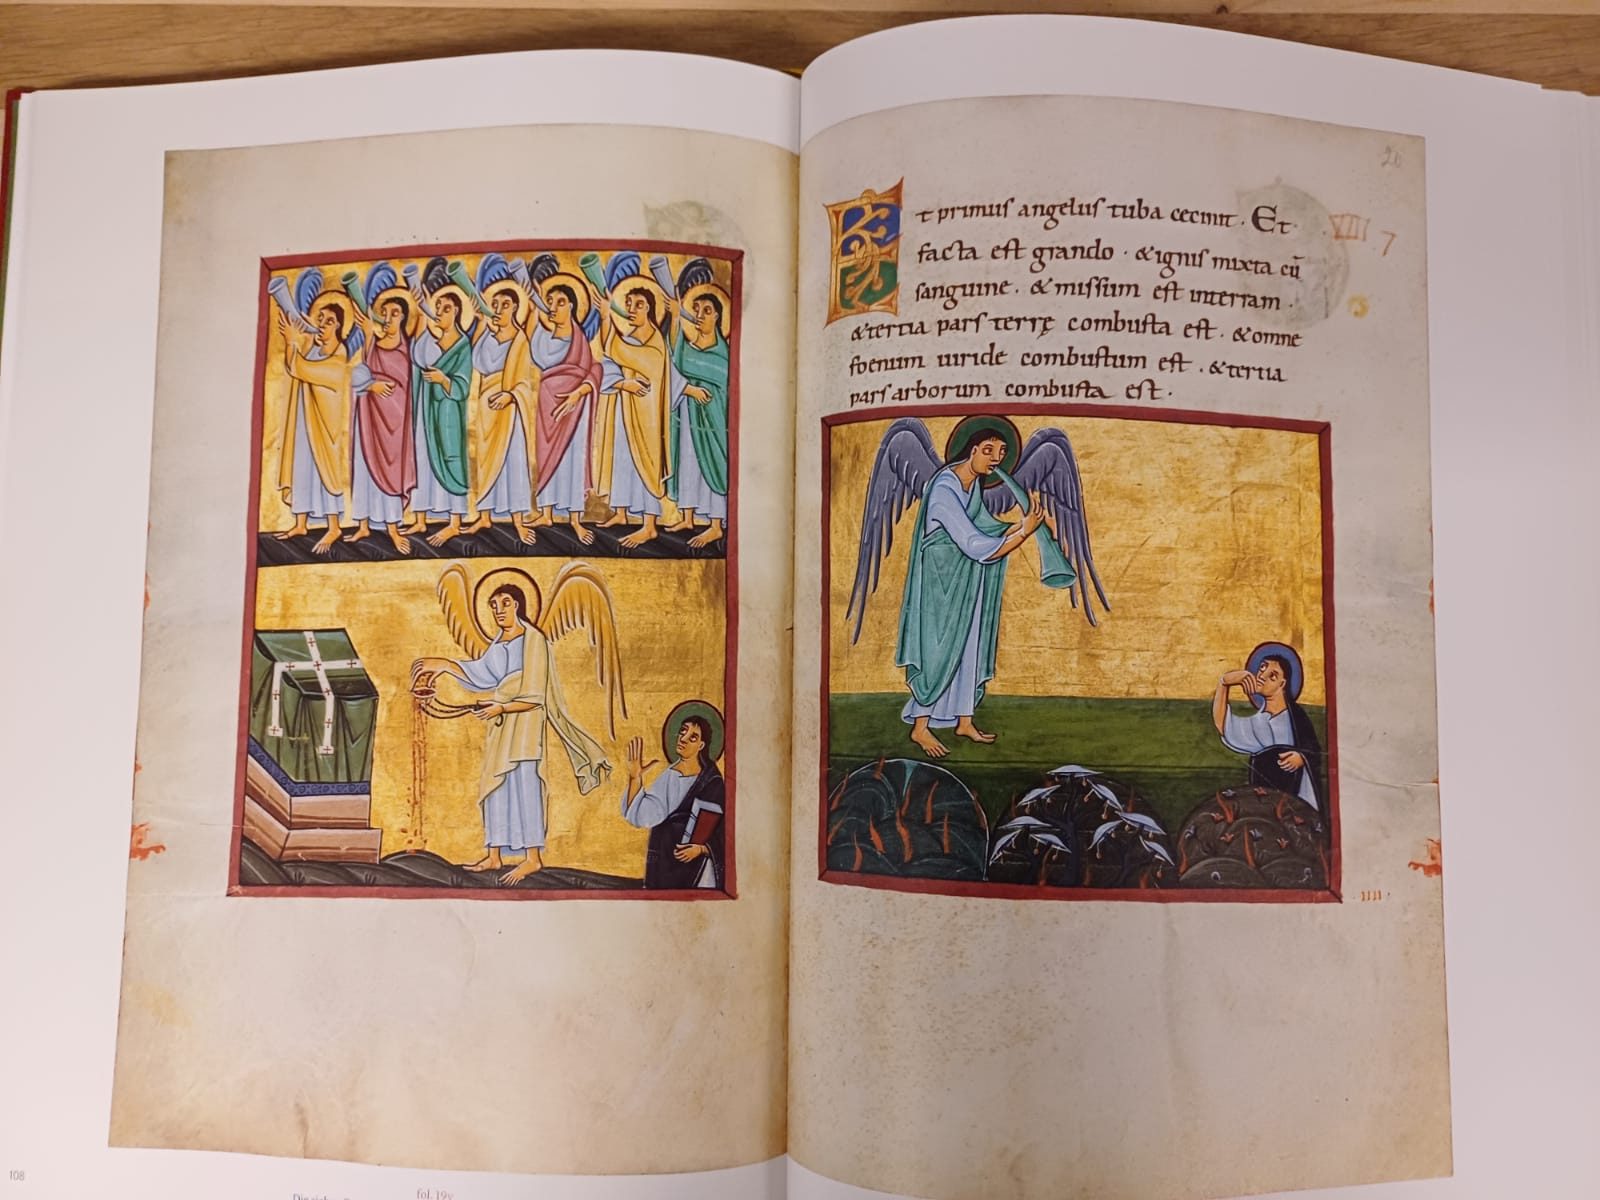 108
fol. 19v
20
Et primus angelus tuba cecinit · Et
VIII 7
facta est grando · & ignis mixta cū
sanguine · & missum est interram ·
& tertia pars terrę combusta est · & omne
foenum uiride combustum est · & tertia
pars arborum combusta est ·
· IIII ·